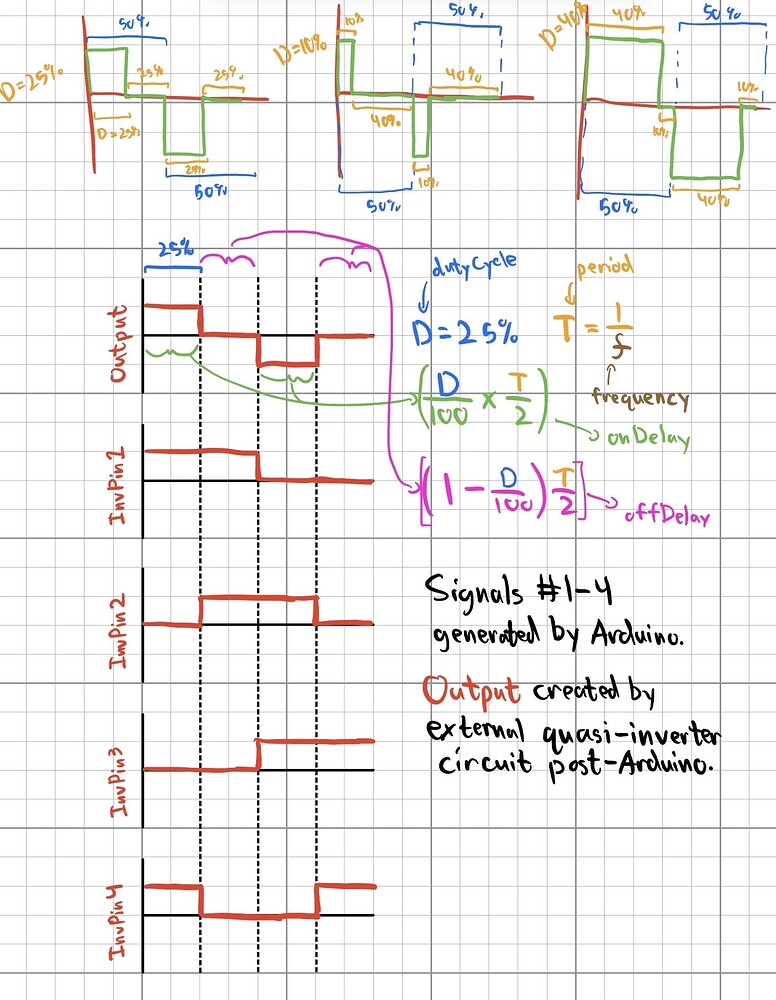 50%
D=25%
25%
25%
D=25%
25%
50%
10%
D=10%
50%
40%
40%
10%
50%
D=40%
40%
50%
10%
10%
40%
50%
25%
Output
dutyCycle
D=25%
period
T = 1/f
frequency
(D/100 × T/2)
onDelay
[(1 - D/100) T/2]
offDelay
InvPin1
InvPin2
Signals #1-4
generated by Arduino.
Output created by
external quasi-inverter
circuit post-Arduino.
InvPin3
InvPin4